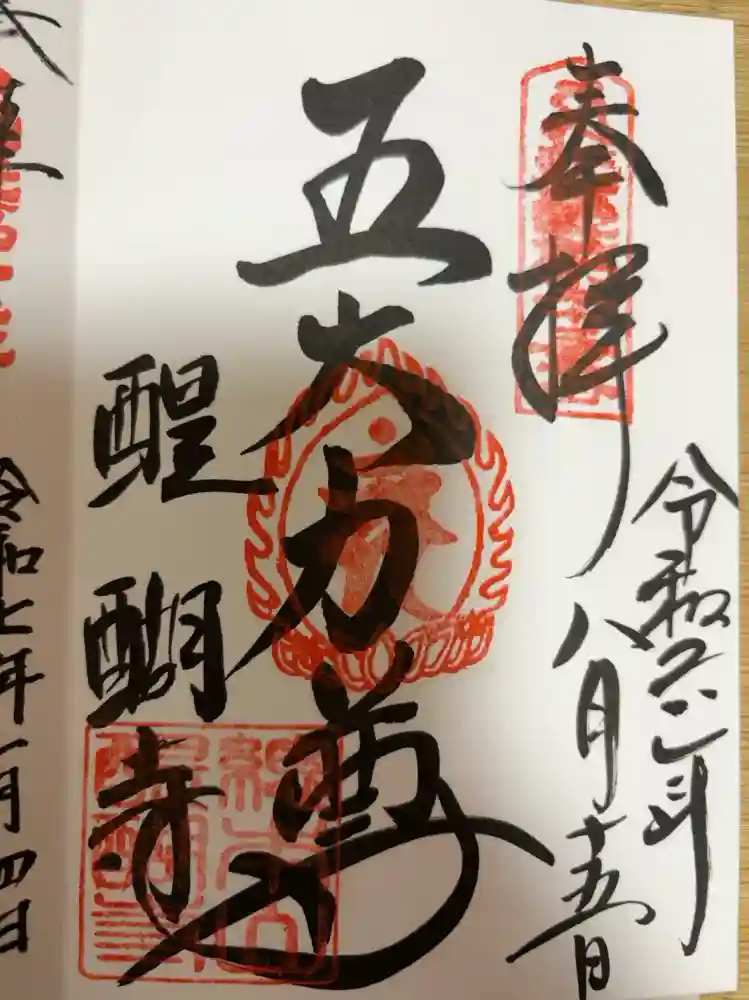 奉拝
令和
八月十五日
五大力尊
醍醐寺
令和七年一月四日